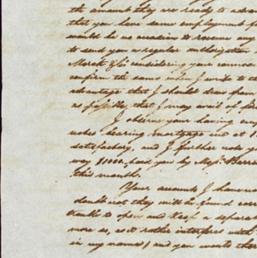 the amount they are ready to adva
that you have some employment f
would be no occasion to receive any
to send you a regular authorization
Merck & Co considering your
confirm the same when I write to the
advantage that I should draw from
as possible, that I may avail of
I observe your having
notes bearing mortgage and at 8
satisfactory, and I further note yo
way $1000 paid you by Majr Barr
this month.
Your accounts I have not
doubt not they will be found corre
thanks to open and keep a separate
more so, as it rather interferes with
in my name, and you wants the